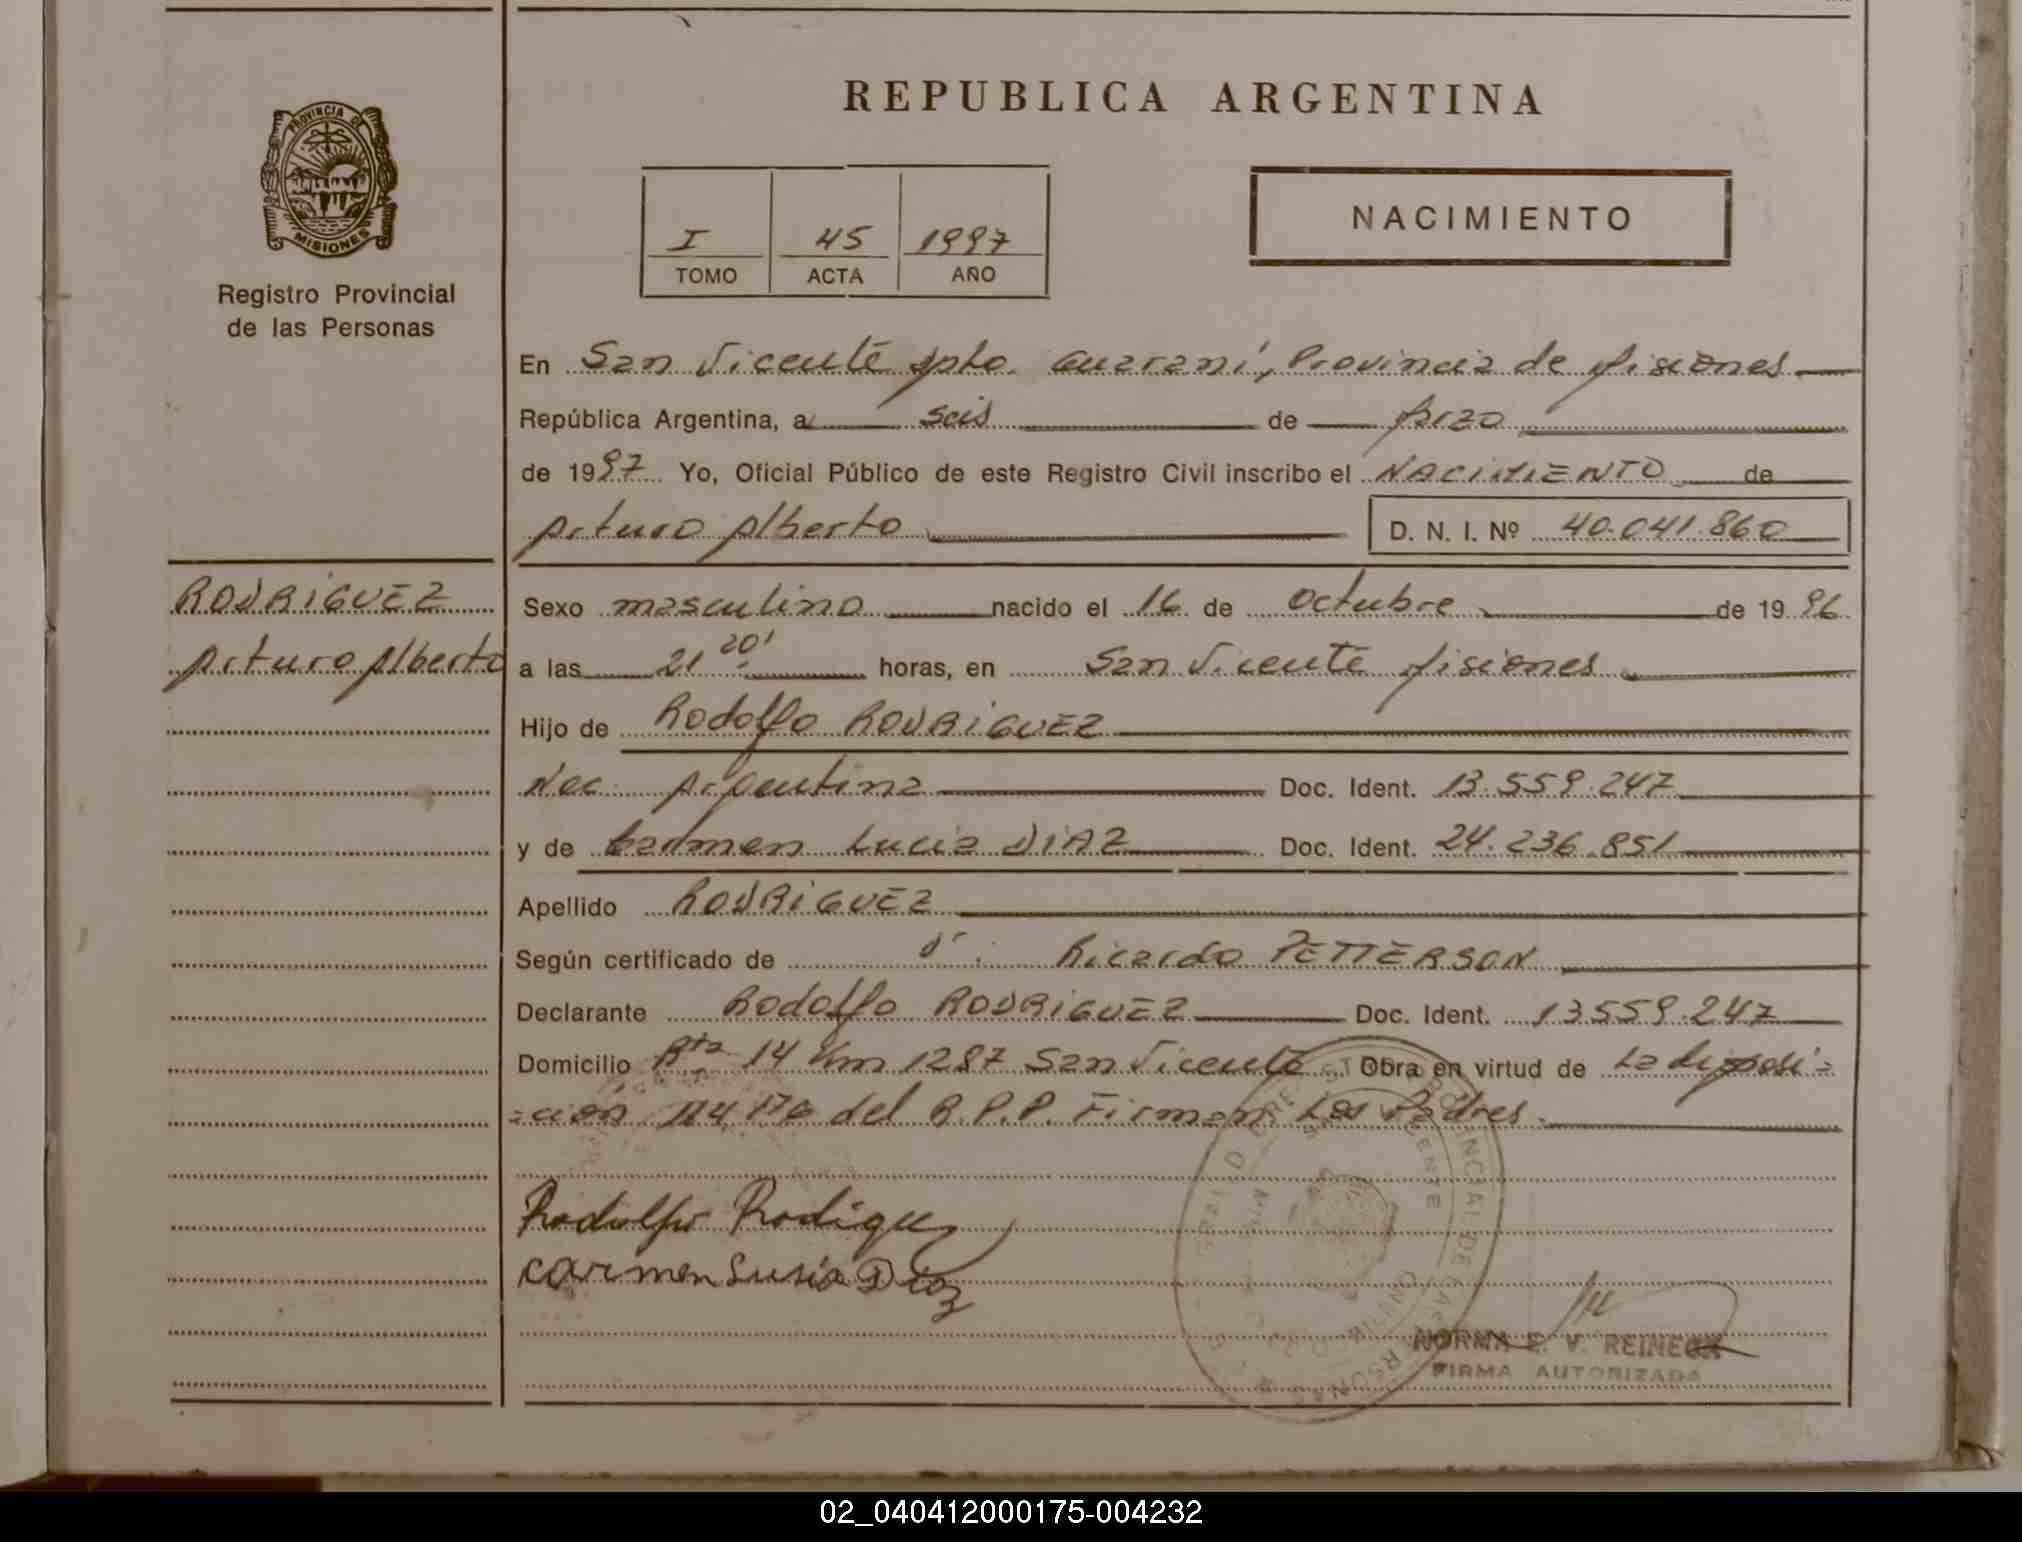 REPUBLICA ARGENTINA
PROVINCIA DE
MISIONES
Registro Provincial
de las Personas
I 45 1997
TOMO ACTA AÑO
NACIMIENTO
En San Vicente Dpto. Guaraní, Provincia de Misiones
República Argentina, a seis de Marzo
de 1997 Yo, Oficial Público de este Registro Civil inscribo el NACIMIENTO de
Arturo Alberto D. N. I. Nº 40.041.860
RODRIGUEZ
Arturo Alberto
Sexo masculino nacido el 16 de Octubre de 1996
a las 21 20' horas, en San Vicente Misiones
Hijo de Rodolfo RODRIGUEZ
Nac. Argentina Doc. Ident. 13.559.247
y de Carmen Lucia DIAZ Doc. Ident. 24.236.851
Apellido RODRIGUEZ
Según certificado de Dr. Ricardo PETTERSON
Declarante Rodolfo RODRIGUEZ Doc. Ident. 13559.247
Domicilio Rta 14 Km 1287 San Vicente Obra en virtud de La disposi=
=ción 114 del R.P.P. Firman Los Padres.
Rodolfo Rodiguez
carmen Lusia Diaz
NORMA E. V. REINECK
FIRMA AUTORIZADA
02_040412000175-004232